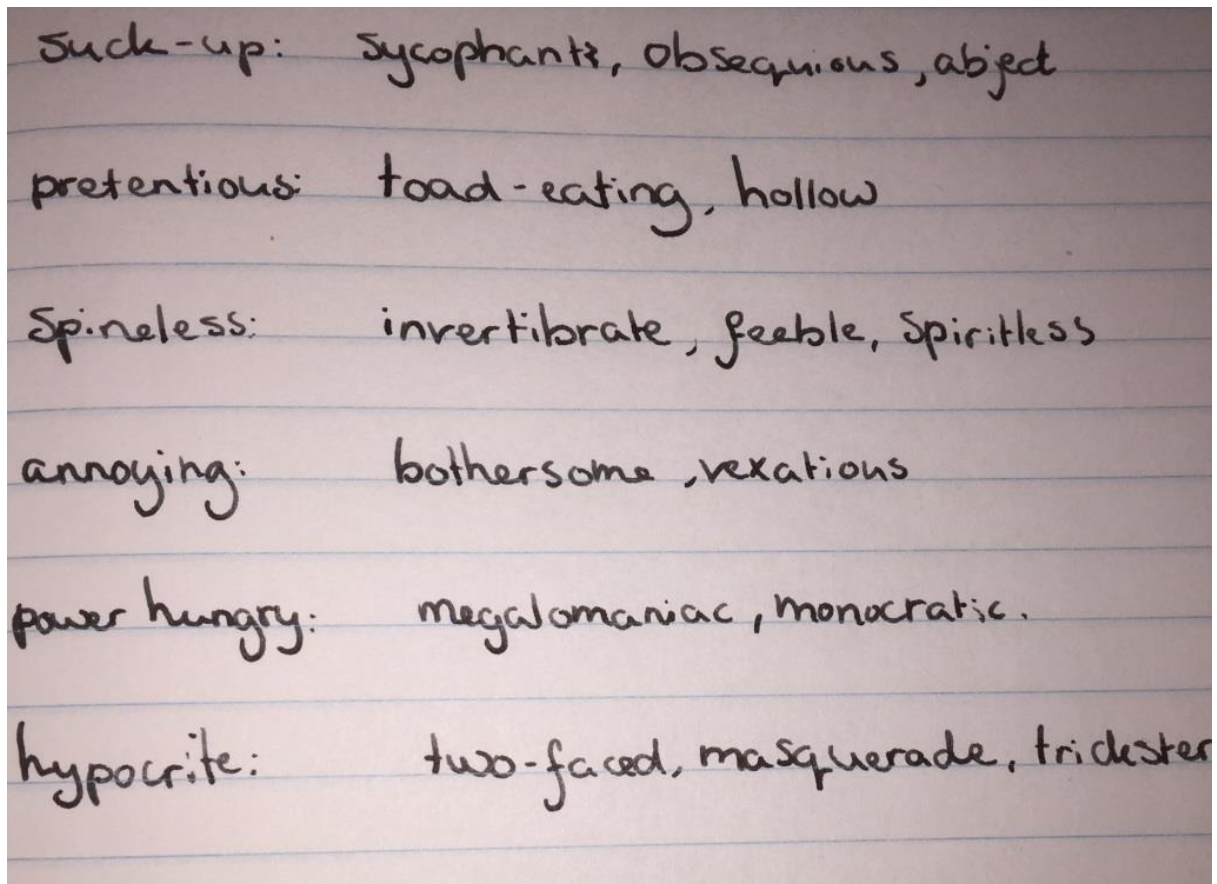 suck-up: sycophants, obsequious, abject
pretentious: toad-eating, hollow
Spineless: invertibrate, feeble, spiritless
annoying: bothersome, vexatious
power hungry: megalomaniac, monocratic.
hypocrite: two-faced, masquerade, trickster